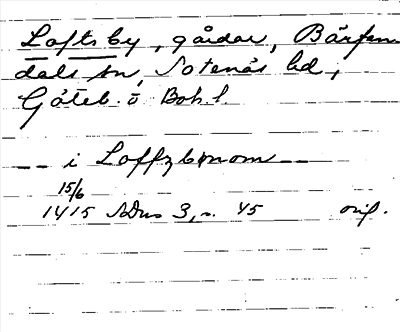 Loftsby, gårdar, Bärfen
dals sn, Sotenäs hd,
Göteb. o Boh. l.
-- i Loffzbynom --
15/6
1415 SDns 3, s. 45 orig.